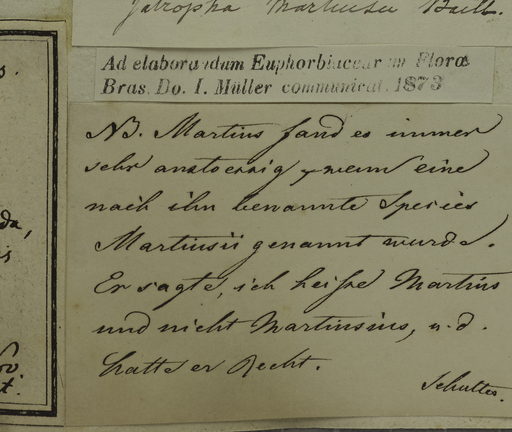 Jatropha Martiusii Baill.
s.
Ad elaborandum Euphorbiacear in Florae
Bras. Do. I. Müller communicat. 1873
NB. Martius fand es immer
sehr anstoessig, wenn eine
nach ihm benannte Species
Martiusii genannt wurde.
Er sagte, ich heisse Martius
und nicht Martiusius, u. d.
hatte er Recht.
Schultes.
da,
is
t.